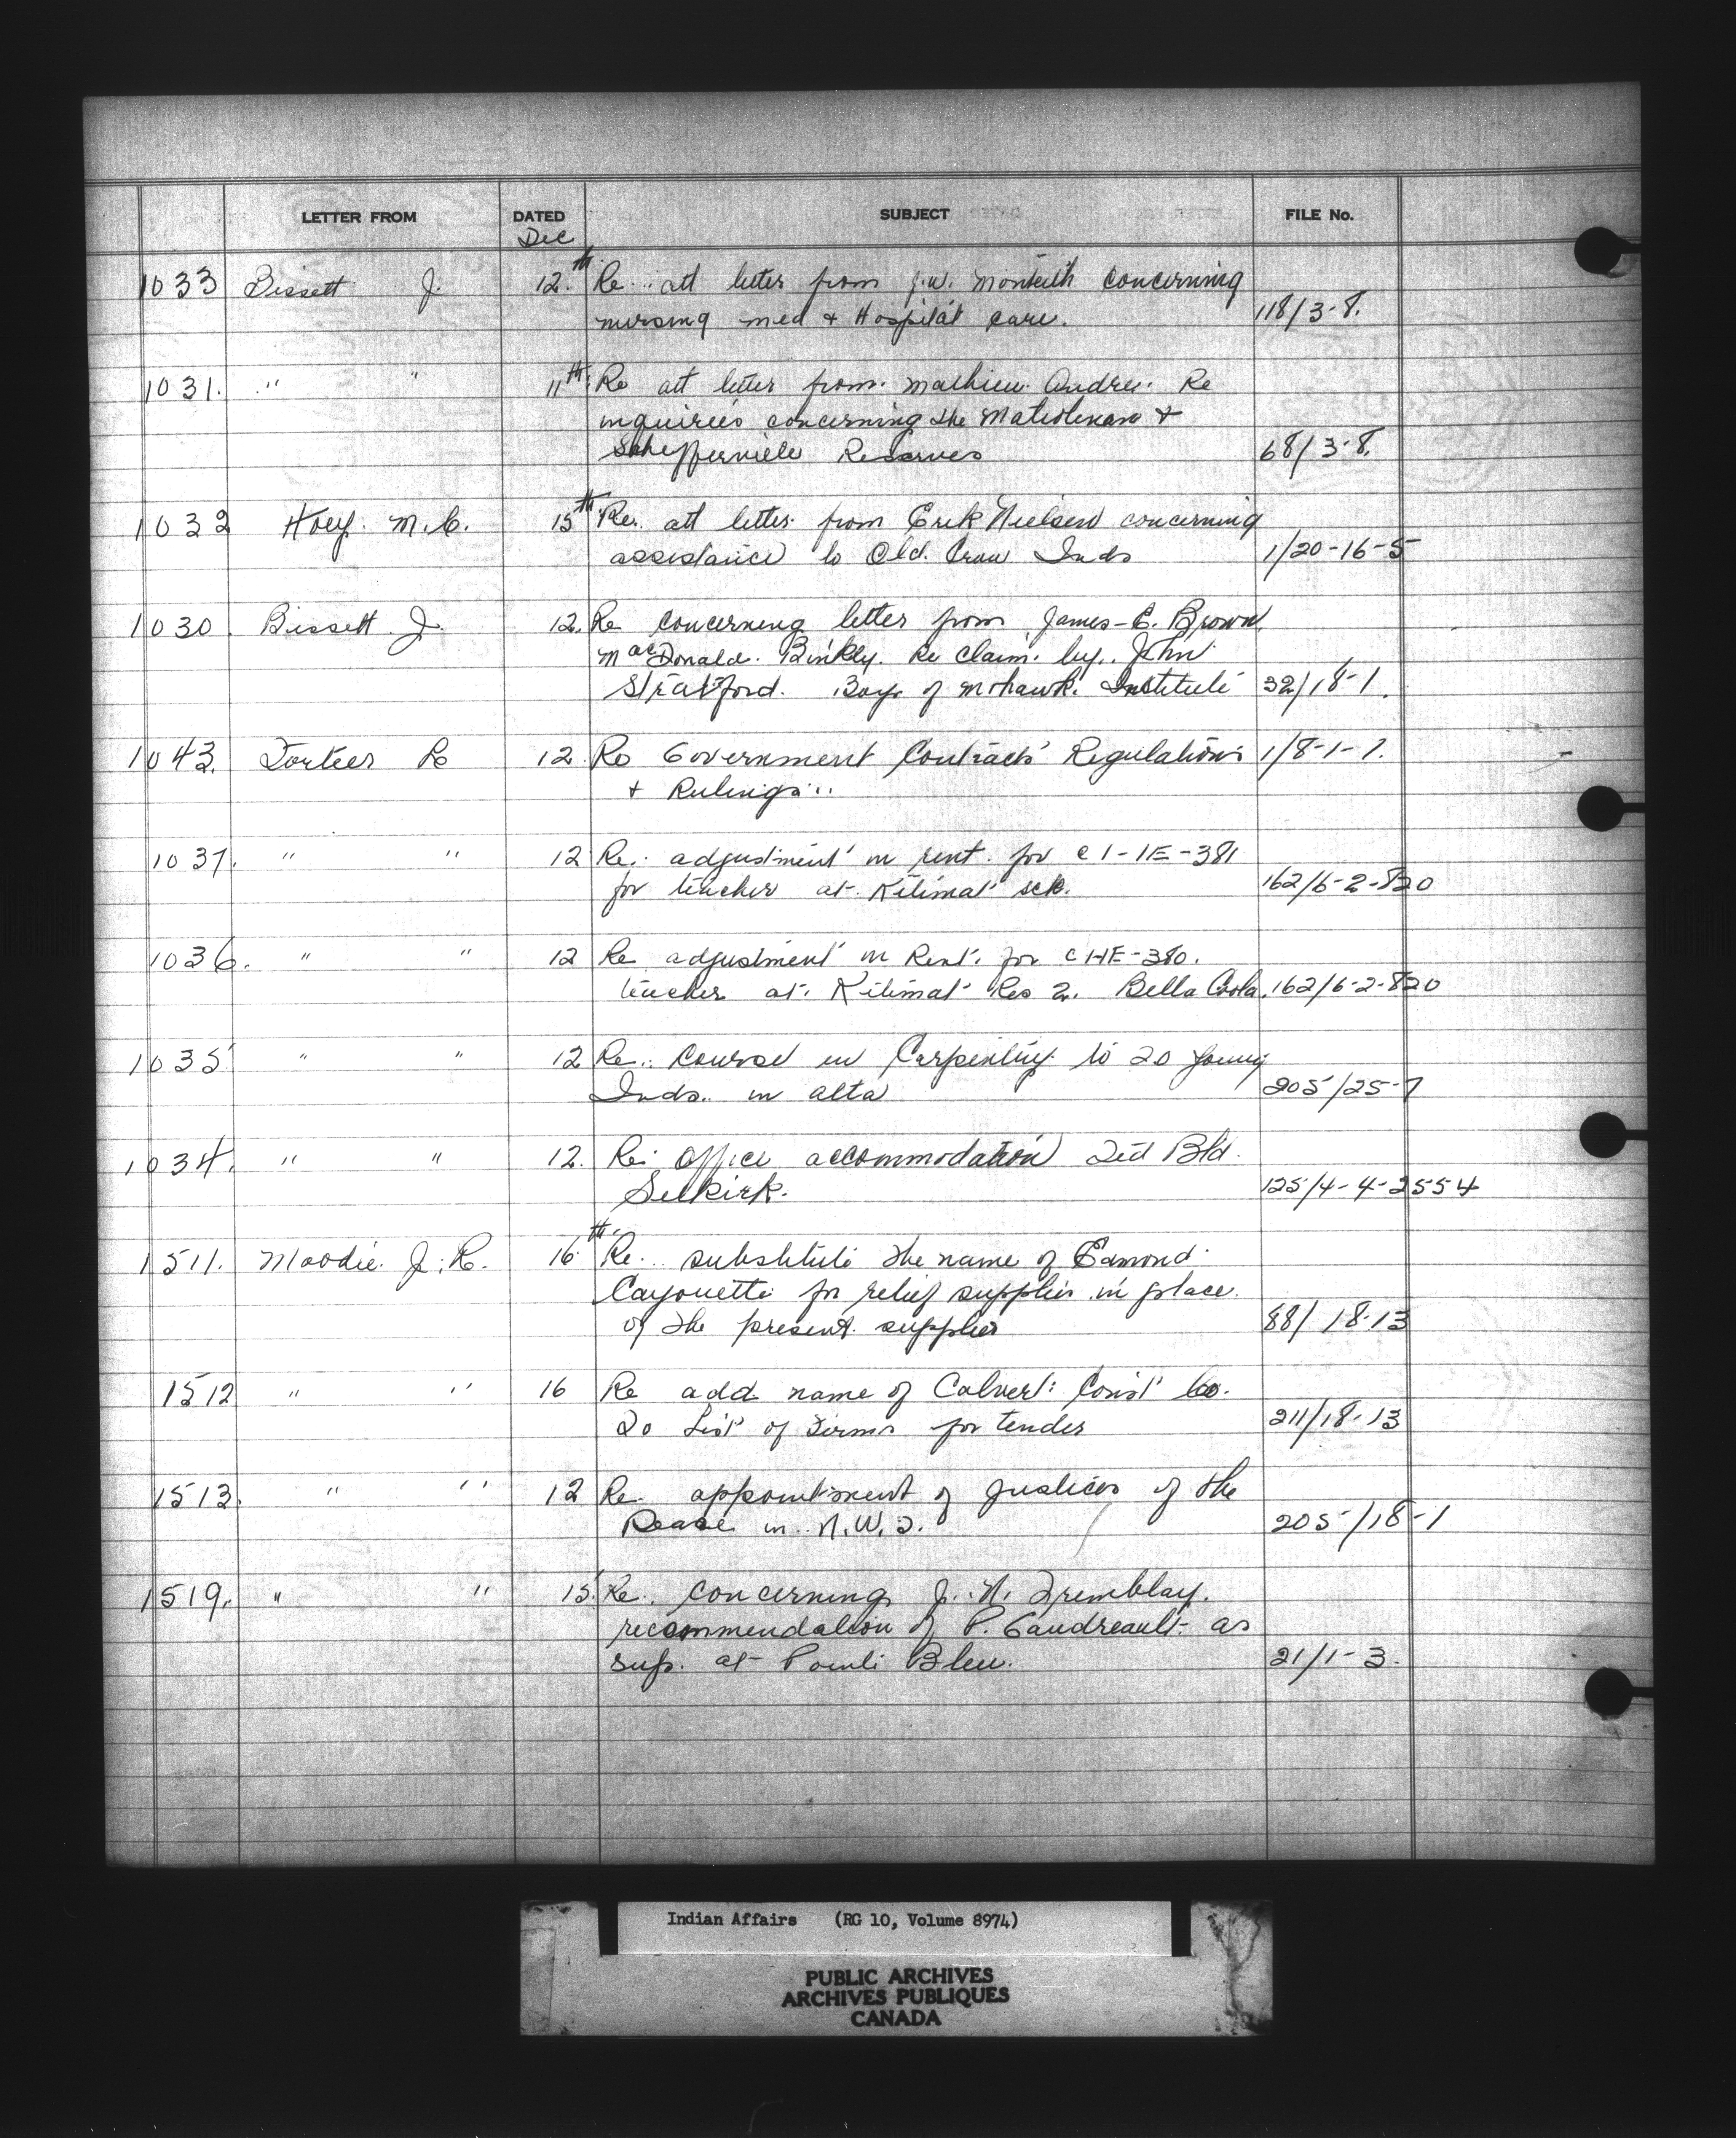 LETTER FROM DATED SUBJECT FILE No.
Dec
1033 Bissett J. 12.th Re. att letter from J.W. Monteith concerning
nursing med & Hospital care. 118/3-8.
1031. " " 11th Re att letter from Mathieu Andre. Re
inquiries concerning the &
Schefferville Reserves 68/3-8.
1032 Hoey. M.C. 15th Re. att letter from Erik Nielsen concerning
assistance to Old. Crow Inds 1/20-16-5
1030. Bissett J. 12. Re concerning letter from James-E. Brown
MacDonald. Binkly. Re claim. by. John
Stratford. Boys of Mohawk. Institute 32/18-1.
1043. 12 Re Government Contracts Regulations 1/8-1-7.
& Rulings..
1037. " " 12 Re. adjustment in rent. for
for teacher at Kitimat sch. 162/6-2-820
1036. " " 12 Re adjustment in Rent. for
teacher at. Kitimat Res 2. Bella Coola. 162/6-2-820
1035 " " 12 Re. Course in Carpentry to 20 young
Inds. in Alta 205/25-7
1034. " " 12. Re: office accommodation Fed Bld.
Selkirk. 125/4-4-2554
1511. Moodie. J.R. 16th Re. substitute the name of Edmond
Cayouette for relief supplies in place.
of the present. supplier 88/18-13
1512 " " 16 Re add name of Calvert: Const Co.
To List of Firms for tender 211/18-13
1513. " " 12 Re. appointment of Justices of the
Peace in N.W.T. 205/18-1
1519. " " 15 Re. concerning J.-N. Tremblay.
recommendation of P. Gaudreault- as
sup. at Pointe Bleu. 21/1-3.
Indian Affairs (RG 10, Volume 8974)
PUBLIC ARCHIVES
ARCHIVES PUBLIQUES
CANADA